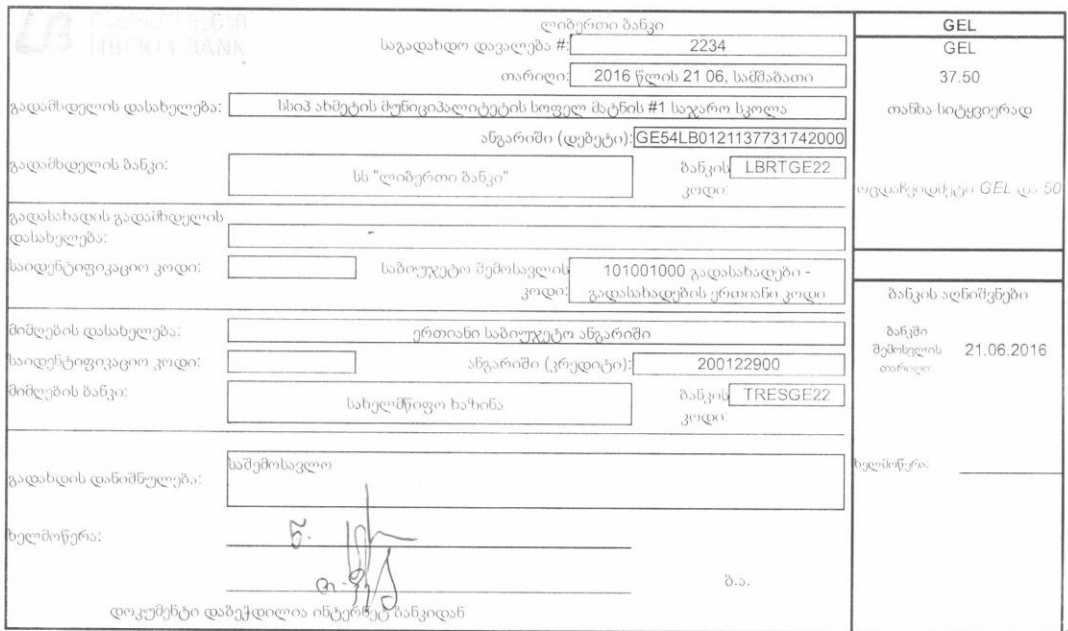 LIBERTY BANK
ლიბერთი ბანკი
საგადახდო დავალება #: 2234
თარიღი: 2016 წლის 21 06, სამშაბათი
გადამხდელის დასახელება: სსიპ ახმეტის მუნიციპალიტეტის სოფელ მატნის #1 საჯარო სკოლა
ანგარიში (დებეტი): GE54LB0121137731742000
გადამხდელის ბანკი: სს "ლიბერთი ბანკი" ბანკის კოდი: LBRTGE22
გადასახადის გადამხდელის
დასახელება:
საიდენტიფიკაციო კოდი: საბიუჯეტო შემოსავლის კოდი: 101001000 გადასახადები -
გადასახადების ერთიანი კოდი
მიმღების დასახელება: ერთიანი საბიუჯეტო ანგარიში
საიდენტიფიკაციო კოდი: ანგარიში (კრედიტი): 200122900
მიმღების ბანკი: სახელმწიფო ხაზინა ბანკის კოდი: TRESGE22
გადახდის დანიშნულება: საშემოსავლო
ხელმოწერა:
ბ.ა.
დოკუმენტი დაბეჭდილია ინტერნეტ ბანკიდან
GEL
GEL
37.50
თანხა სიტყვიერად
ოცდაჩვიდმეტი GEL და 50
ბანკის აღნიშვნები
ბანკში
შემოსვლის 21.06.2016
თარიღი
ხელმოწერა: